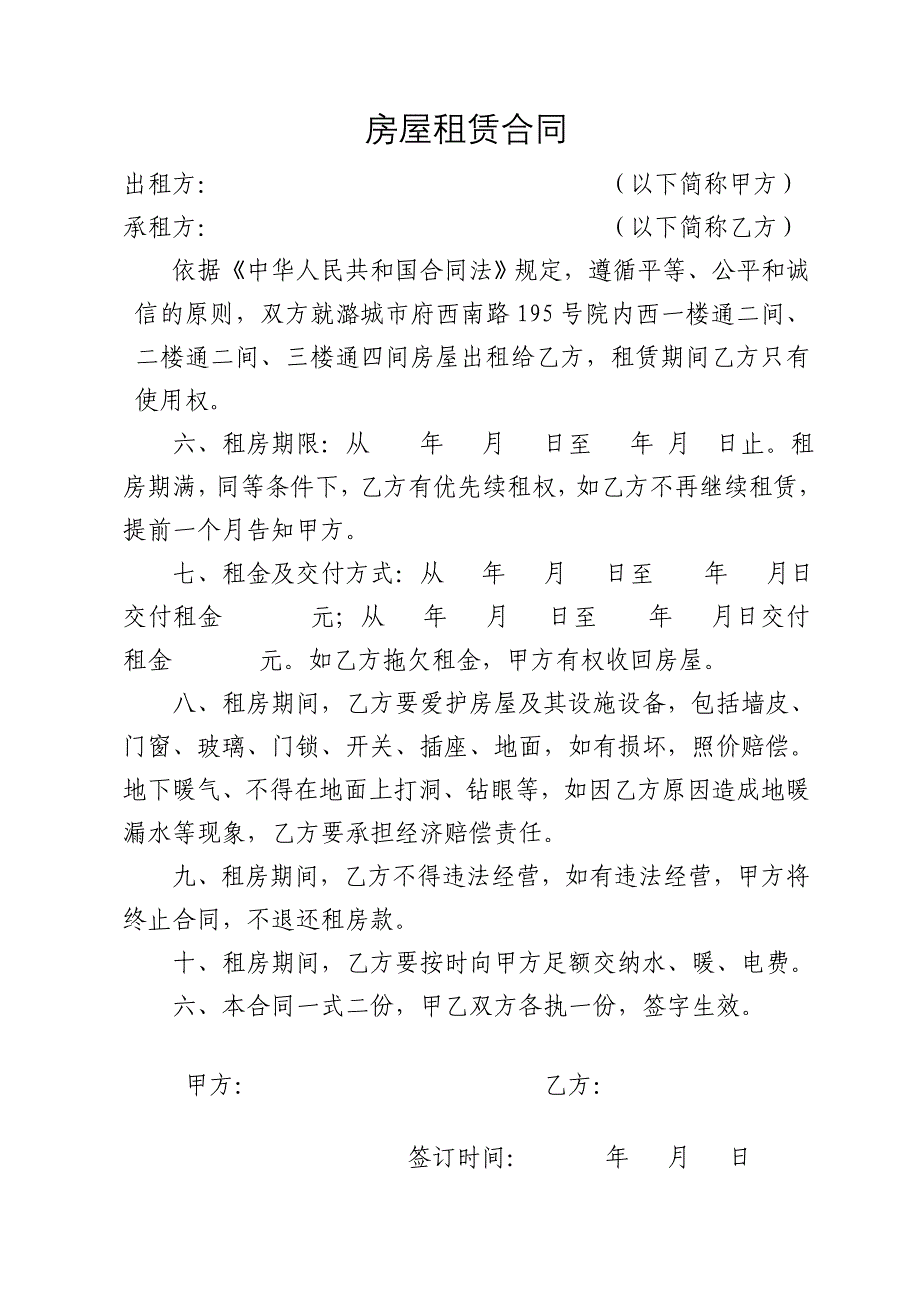 房屋租赁合同
出租方： （以下简称甲方）
承租方： （以下简称乙方）
依据《中华人民共和国合同法》规定，遵循平等、公平和诚
信的原则，双方就潞城市府西南路 195 号院内西一楼通二间、
二楼通二间、三楼通四间房屋出租给乙方，租赁期间乙方只有
使用权。
六、租房期限：从 年 月 日至 年 月 日止。租
房期满，同等条件下，乙方有优先续租权，如乙方不再继续租赁，
提前一个月告知甲方。
七、租金及交付方式：从 年 月 日至 年 月日
交付租金 元；从 年 月 日至 年 月日交付
租金 元。如乙方拖欠租金，甲方有权收回房屋。
八、租房期间，乙方要爱护房屋及其设施设备，包括墙皮、
门窗、玻璃、门锁、开关、插座、地面，如有损坏，照价赔偿。
地下暖气、不得在地面上打洞、钻眼等，如因乙方原因造成地暖
漏水等现象，乙方要承担经济赔偿责任。
九、租房期间，乙方不得违法经营，如有违法经营，甲方将
终止合同，不退还租房款。
十、租房期间，乙方要按时向甲方足额交纳水、暖、电费。
六、本合同一式二份，甲乙双方各执一份，签字生效。
甲方： 乙方：
签订时间： 年 月 日